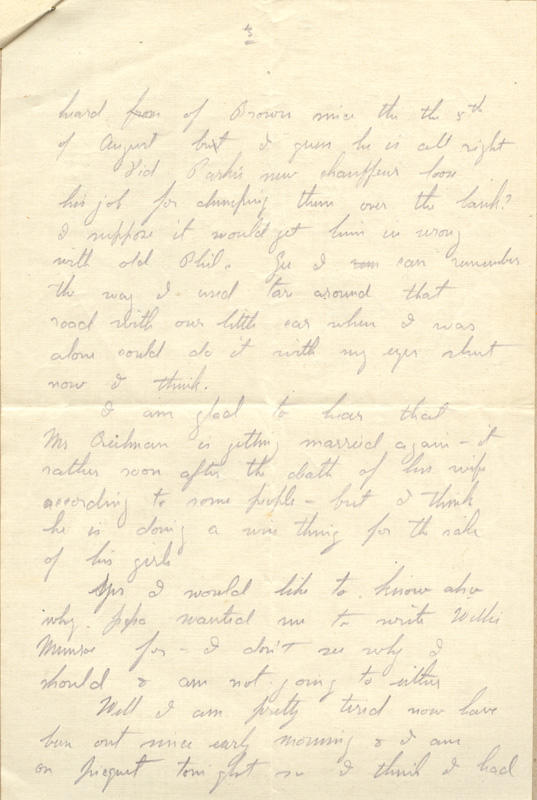 5
heard from of Brown since the th 5th
of August but I guess he is all right
Did Parkis new chauffeur loose
his job for dumping them over the bank?
I suppose it would get him in wrong
with old Phil. Gee I can remember
the way I used tar around that
road with our little car when I was
alone could do it with my eyes shut
now I think.
I am glad to hear that
Mr is getting married again - it
rather soon after the death of his wife
according to some people - but I think
he is doing a wise thing for the sake
of his girls
Yes I would like to know also
why Papa wanted me to write Willis
Munroe for - I don't see why I
should & am not going to either
Well I am pretty tired now have
been out since early morning & I am
on picquet tonight so I think I had